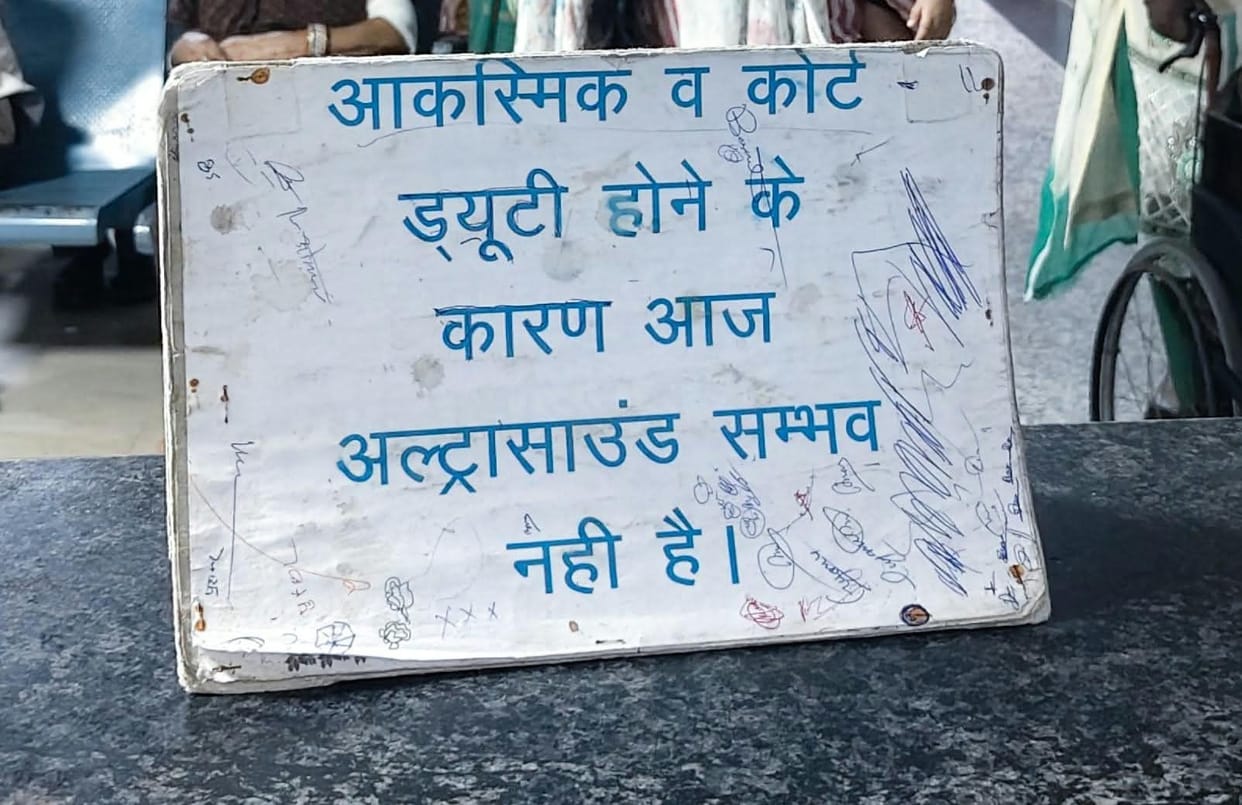 आकस्मिक व कोर्ट
ड्यूटी होने के
कारण आज
अल्ट्रासाउंड सम्भव
नही है।